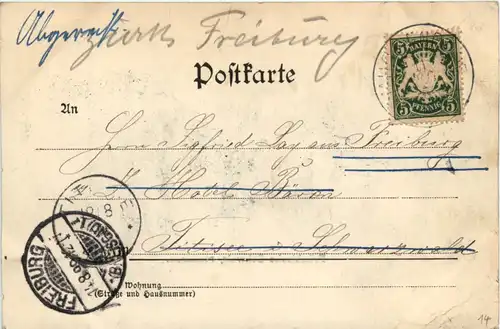 Abgereist zurück Freiburg
Postkarte
BAYERN
5 5
PFENNIG
An
Herrn Sigfried Lay aus Freiburg
Hotel Bären
Titisee i Schwarzwald
Wohnung
(Straße und Hausnummer)
FREIBURG
14